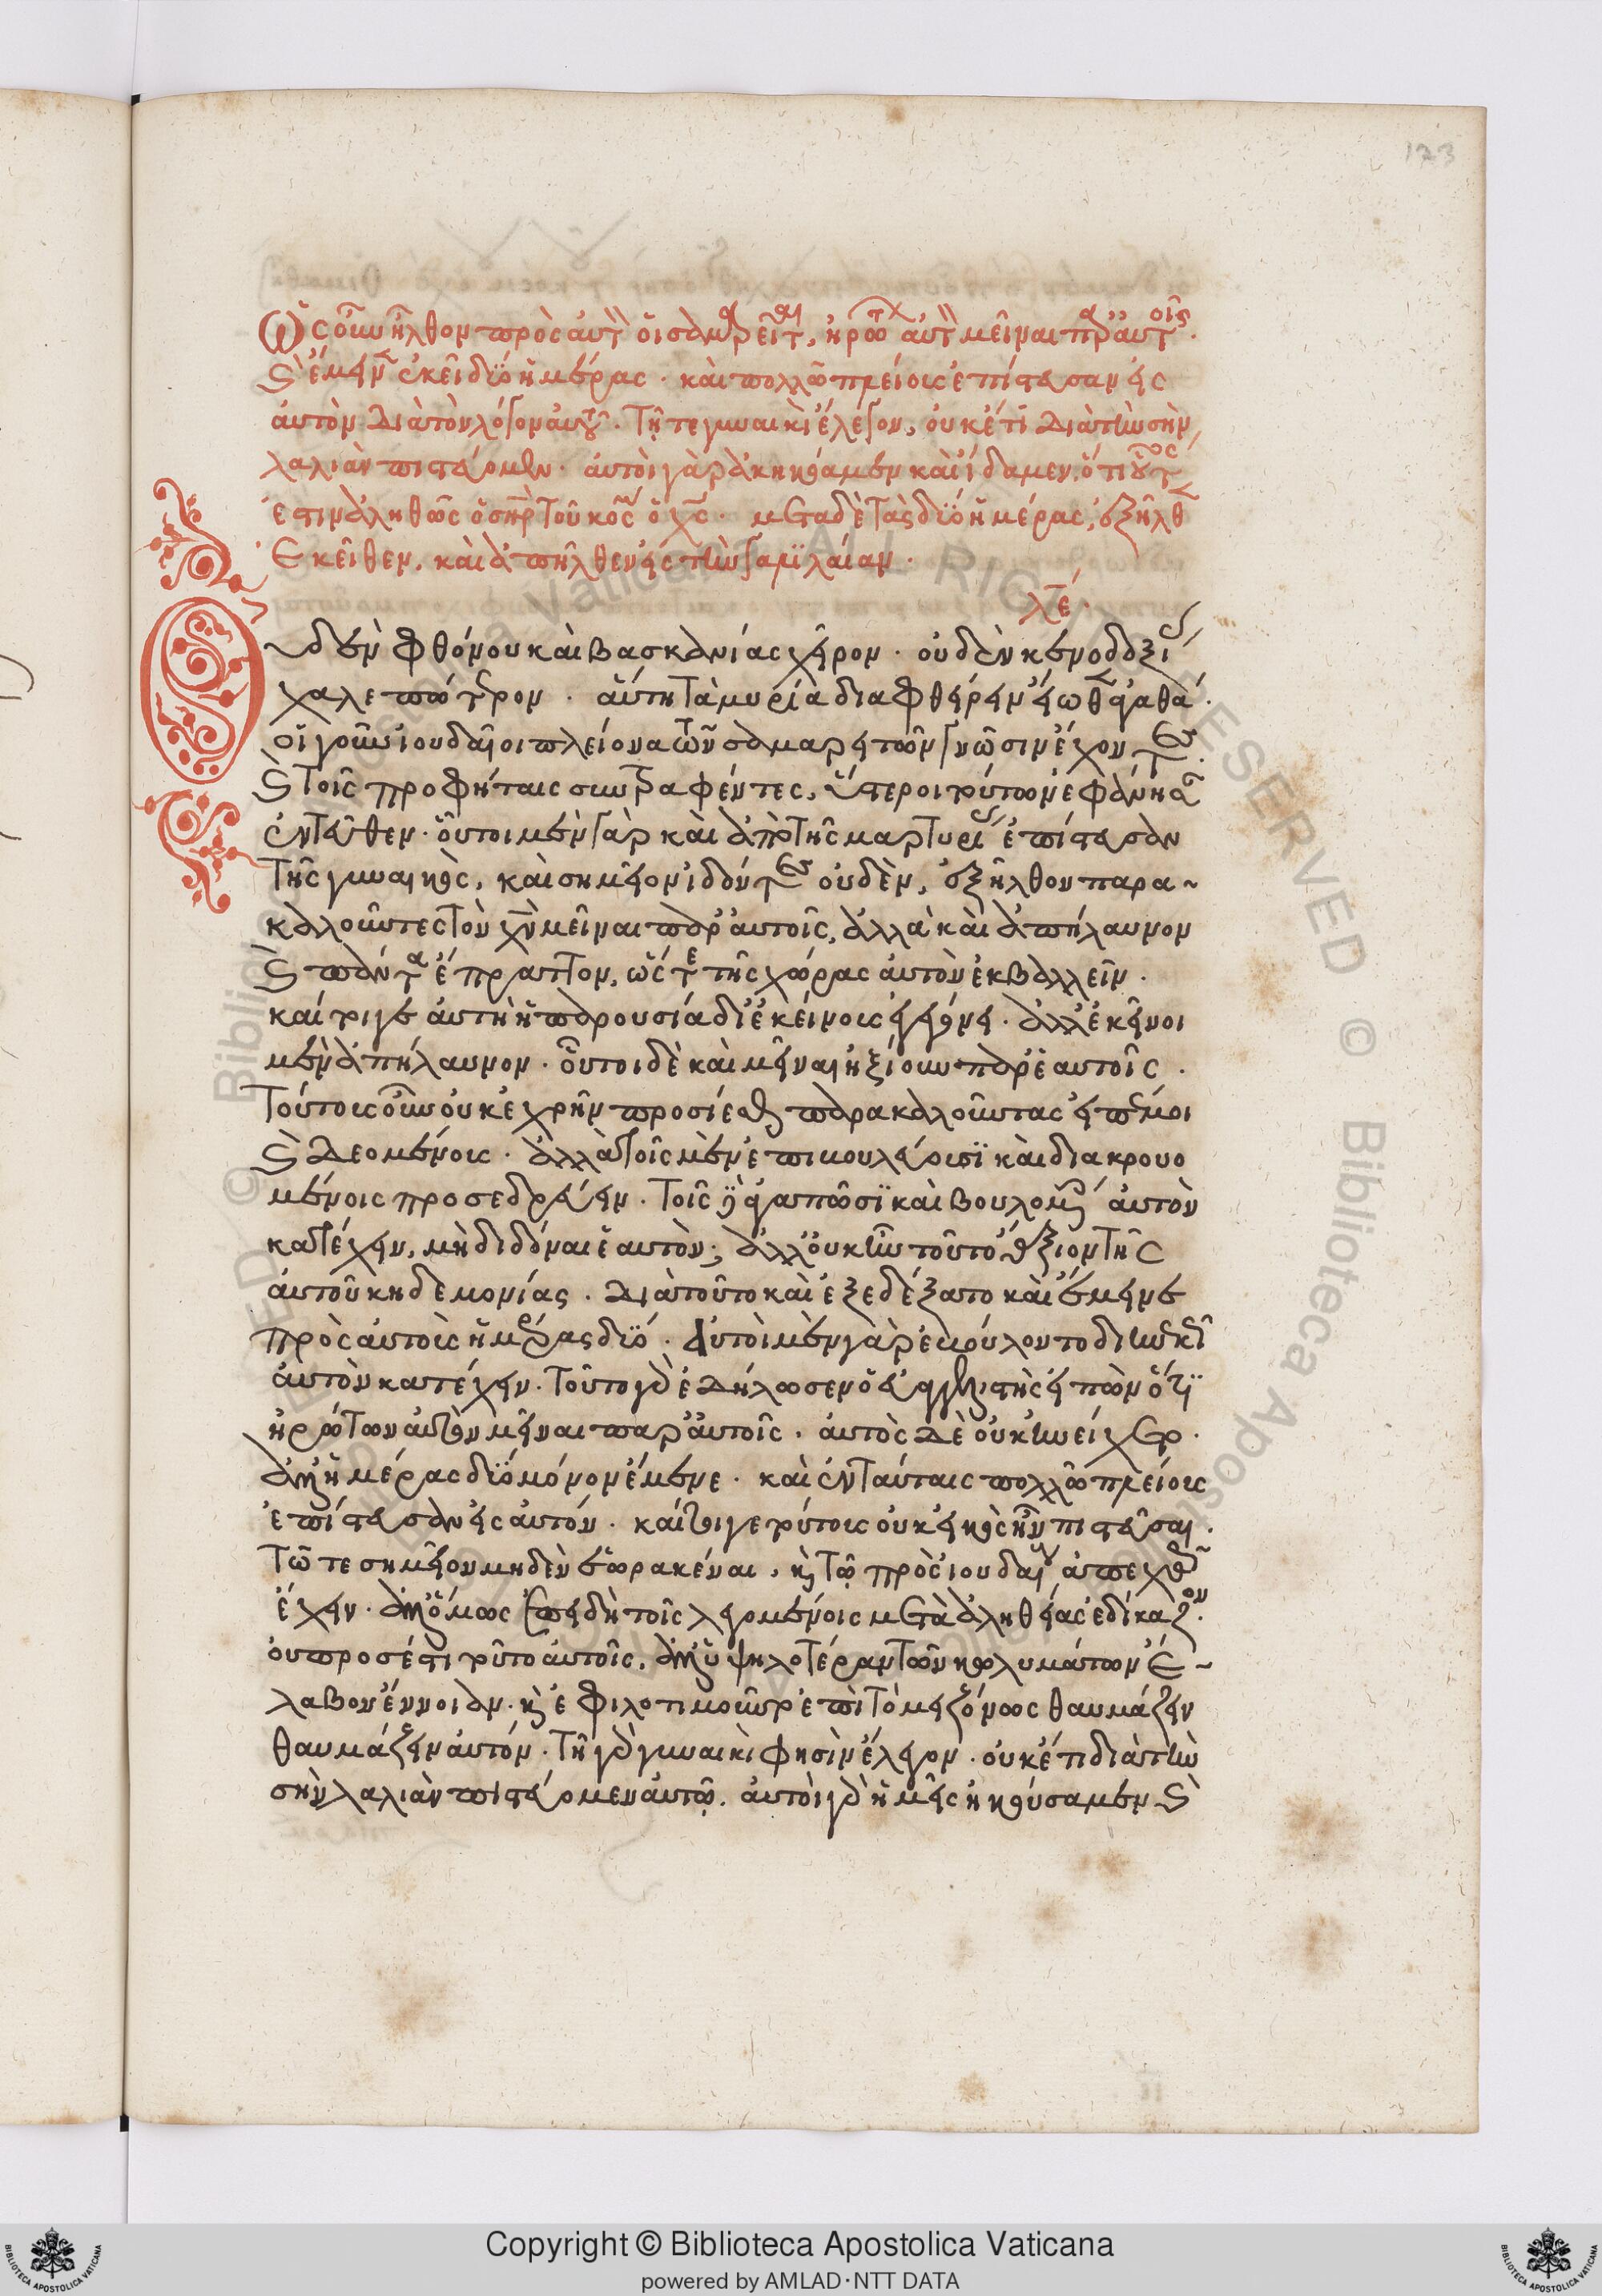 173
Ὡς οὖν ἦλθον πρὸς αὐτὸν οἱ σαμαρεῖται, ἠρώτων αὐτὸν μεῖναι παρ' αὐτοῖς.
καὶ ἔμεινεν ἐκεῖ δύο ἡμέρας. καὶ πολλῷ πλείους ἐπίστευσαν εἰς
αὐτὸν διὰ τὸν λόγον αὐτοῦ. Τῇ τε γυναικὶ ἔλεγον, οὐκέτι διὰ τὴν σὴν
λαλιὰν πιστεύομεν. αὐτοὶ γὰρ ἀκηκόαμεν καὶ οἴδαμεν, ὅτι οὗτος
ἐστιν ἀληθῶς ὁ σηρ τοῦ κόσμου ὁ χς. μετὰ δὲ τὰς δύο ἡμέρας, ἐξῆλθεν
ἐκεῖθεν, καὶ ἀπῆλθεν εἰς τὴν γαλιλαίαν.
λε.
Οὐδὲν φθόνου καὶ βασκανίας χεῖρον. οὐδὲν κενοδοξίας
χαλεπώτερον. αὕτη τὰ μυρία διαφθείρειν εἴωθεν ἀγαθά.
οἱ γοῦν ἰουδαῖοι πλείονα τῶν σαμαρειτῶν γνῶσιν ἔχοντες.
καὶ τοῖς προφήταις συντραφέντες, ὕστεροι τούτων ἐφάνησαν
ἐντεῦθεν. οὗτοι μὲν γὰρ καὶ ἀπὸ τῆς μαρτυρίας ἐπίστευσαν
τῆς γυναικὸς, καὶ σημεῖον ἰδόντες οὐδὲν, ἐξῆλθον παρα~
καλοῦντες τὸν χν μεῖναι παρ' αὐτοῖς, ἀλλὰ καὶ ἀπήλαυνον
καὶ πάντα ἔπραττον, ὥστε τῆς χώρας αὐτὸν ἐκβάλλειν.
καί τοιγε αὐτὴ ἡ παρουσία δι' ἐκείνοις ἐγεγόνει. ἀλλ' ἐκεῖνοι
μὲν ἀπήλαυνον. οὗτοι δὲ καὶ μεῖναι ἠξίουν παρ' ἑαυτοῖς.
Τούτοις οὖν οὐκ ἐχρῆν προσίεσθαι παρακαλοῦντας εἰπέ μοι
καὶ δεομένοις. ἀλλὰ τοῖς μὲν ἐπιβουλεύουσι καὶ διακρουο
μένοις προσεδρεύειν. τοῖς δὲ ἀγαπῶσι καὶ βουλομένοις αὐτὸν
κατέχειν, μὴ διδόναι ἑαυτὸν; ἀλλ' οὐκ ἦν τοῦτο ἄξιον τῆς
αὐτοῦ κηδεμονίας. Διὰ τοῦτο καὶ ἐξεδέξατο καὶ ἔμεινε
πρὸς αὐτοῖς ἡμέρας δύο. Αὐτοὶ μὲν γὰρ ἐβούλοντο διηνεκῶς
αὐτὸν κατέχειν. Τοῦτο γὰρ ἐδήλωσεν ὁ εὐαγγελιστὴς εἰπὼν ὅτι
ἠρώτων αὐτὸν μεῖναι παρ' αὐτοῖς. αὐτὸς δὲ οὐκ ἠνείχετο.
ἀλλ' ἡμέρας δύο μόνον ἔμεινε. καὶ ἐν ταύταις πολλῷ πλείους
ἐπίστευσαν εἰς αὐτόν. καίτοιγε τούτοις οὐκ εἰκὸς ἦν πιστεῦσαι.
τῷ τε σημεῖον μηδὲν ἑωρακέναι, καὶ τῷ πρὸς ἰουδαίους ἀπεχθῶς
ἔχειν. ἀλλ' ὅμως ἐπειδὴ τοῖς λεγομένοις μετὰ ἀληθείας ἐδίκαζον.
οὐ προσέστι τοῦτο αὐτοῖς, ἀλλ' ὑψηλοτέραν τῶν κωλυμάτων ἔ~
λαβον ἔννοιαν. καὶ ἐφιλοτιμοῦντο ἐπὶ τὸ μειζόνως θαυμάζειν
θαυμάζειν αὐτόν. Τῇ γὰρ γυναικὶ φησὶν ἔλεγον. οὐκέτι διὰ τὴν
σὴν λαλιὰν πιστεύομεν αὐτῷ. αὐτοὶ γὰρ ἡμεῖς ἠκούσαμεν καὶ
Copyright © Biblioteca Apostolica Vaticana
powered by AMLAD·NTT DATA